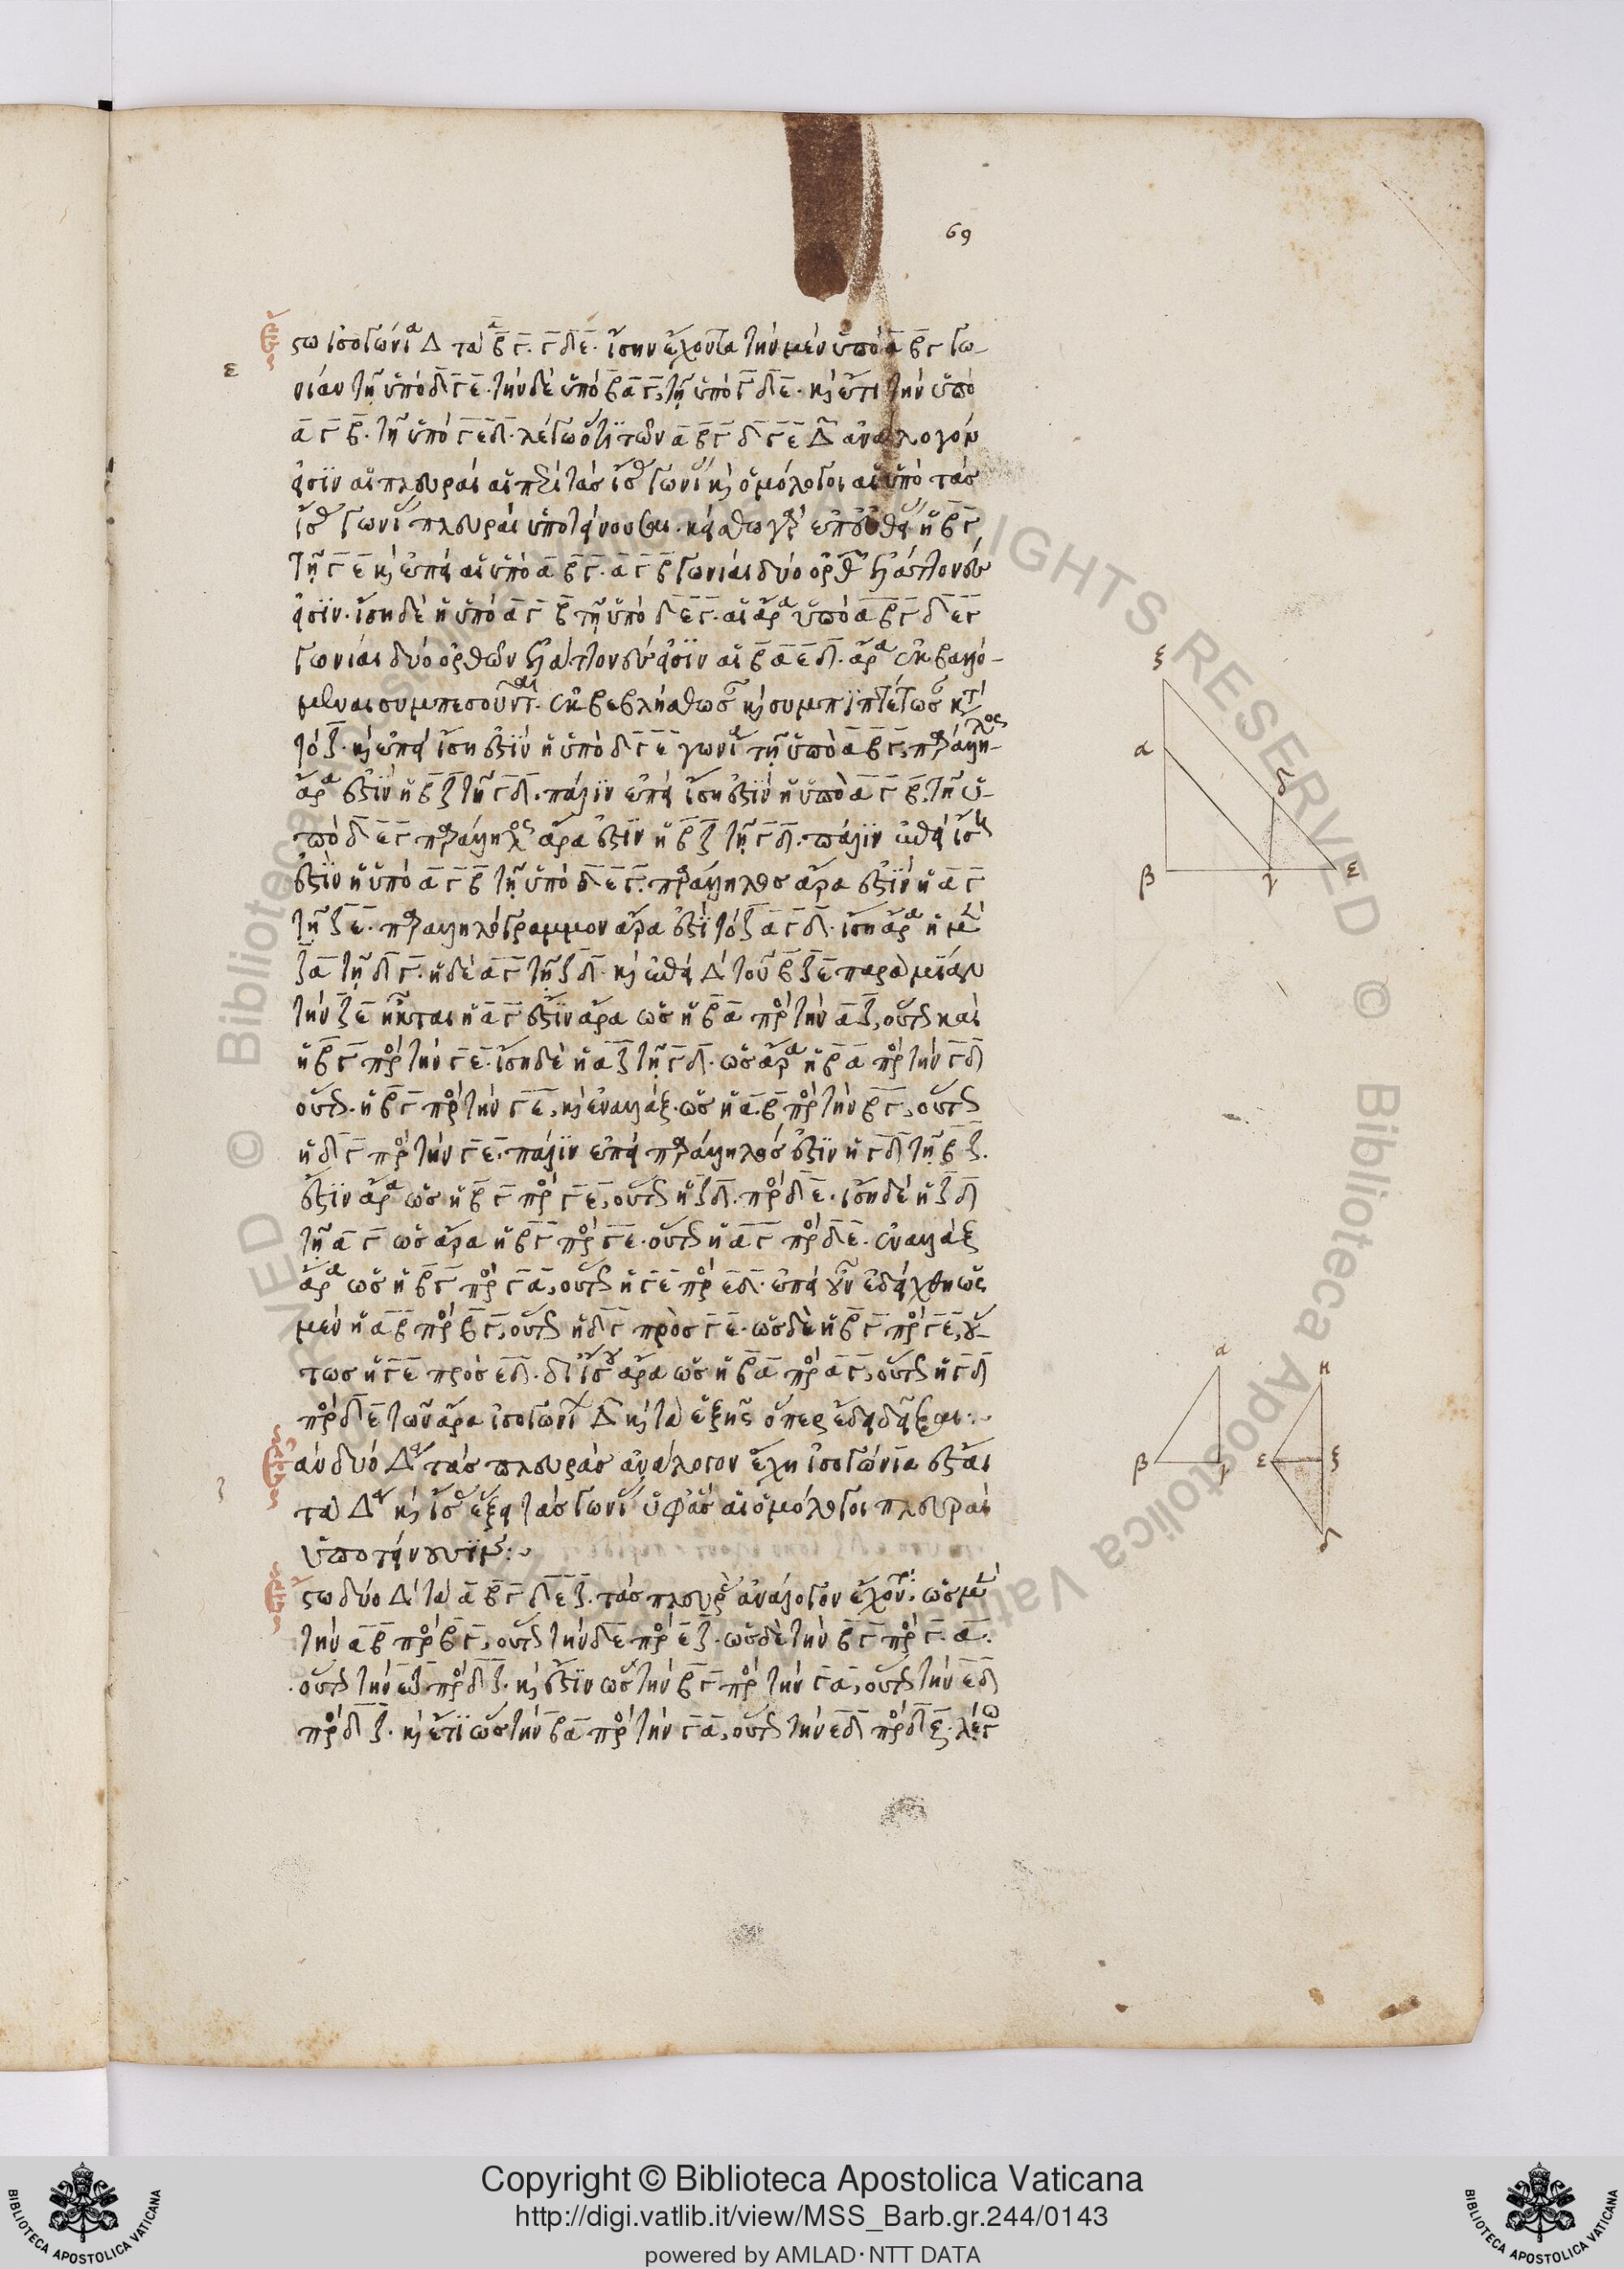 69
Ἔστω ἰσογώνια Δ τὰ αβγ. γδε. ἴσην ἔχοντα τὴν μὲν ὑπὸ αβγ γω-
ε
νίαν τῇ ὑπὸ δγε. τὴν δὲ ὑπὸ βαγ, τῇ ὑπὸ γδε. κὶ ἔτι τὴν ὑπὸ
αγβ. τῇ ὑπὸ γεδ. λέγω ὅτι τῶν αβγ δγε Δ ἀνάλογόν
εἰσιν αἱ πλευραὶ αἱ περὶ τὰς ἴσ γωνί κὶ ὁμόλογοι αἱ ὑπὸ τὰς
ἴσ γωνί πλευραὶ ὑποτείνουσαι. κείσθω γὰρ ἐπ εὐθεί ἡ βγ
τῇ γε κὶ ἐπεὶ αἱ ὑπὸ αβγ. αγβ γωνίαι δύο ὀρθ ἐλάττονές
εἰσιν. ἴση δὲ ἡ ὑπὸ αγβ τῇ ὑπὸ δεγ. αἱ ἄρα ὑπὸ αβγ δεγ
γωνίαι δύο ὀρθῶν ἐλάττονές εἰσιν αἱ βα εδ. ἄρα ἐκβαλλό-
μεναι συμπεσοῦνται. ἐκβεβλήσθωσ κὶ συμπιπτέτωσ κτ
τὸ ζ. κὶ ἐπεὶ ἴση ἐστὶν ἡ ὑπὸ δγε γωνία τῇ ὑπὸ αβγ, παράλληλος
ἄρα ἐστὶν ἡ βζ τῇ γδ. πάλιν ἐπεὶ ἴση ἐστὶν ἡ ὑπὸ αγβ. τῇ ὑ-
πὸ δεγ παράλληλος ἄρα ἐστὶν ἡ βζ τῇ γδ. πάλιν ἐπεὶ ἴση
ἐστὶν ἡ ὑπὸ αγβ τῇ ὑπὸ δεγ. παράλληλος ἄρα ἐστὶν ἡ αγ
τῇ ζε. παραλληλόγραμμον ἄρα ἐστὶ τὸ ζαγδ. ἴση ἄρα ἡ μὲν
ζα τῇ δγ. ἡ δὲ αγ τῇ ζδ. κὶ ἐπεὶ Δ τοῦ βζε παρὰ μίαν
τὴν ζε ἦκται ἡ αγ ἔστιν ἄρα ὡς ἡ βα πρὸς τὴν αζ, οὕτως καὶ
ἡ βγ πρὸς τὴν γε. ἴση δὲ ἡ αζ τῇ γδ. ὡς ἄρα ἡ βα πρὸς τὴν γδ
οὕτως. ἡ βγ πρὸς τὴν γε, κὶ ἐναλλάξ. ὡς ἡ αβ πρὸς τὴν βγ, οὕτως
ἡ δγ πρὸς τὴν γε. πάλιν ἐπεὶ παράλληλός ἐστιν ἡ γδ τῇ βζ.
ἔστιν ἄρα ὡς ἡ βγ πρὸς γε, οὕτως ἡ ζδ. πρὸς δε. ἴση δὲ ἡ ζδ
τῇ αγ ὡς ἄρα ἡ βγ πρὸς γε. οὕτως ἡ αγ πρὸς δε. ἐναλλὰξ
ἄρα ὡς ἡ βγ πρὸς γα, οὕτως ἡ γε πρὸς εδ. ἐπεὶ οὖν ἐδείχθη ὡς
μὲν ἡ αβ πρὸς βγ, οὕτως ἡ δγ πρὸς γε. ὡς δὲ ἡ βγ πρὸς γε, οὕ-
τως ἡ γε πρὸς εδ. δι ἴσου ἄρα ὡς ἡ βα πρὸς αγ, οὕτως ἡ γδ
πρὸς δε τῶν ἄρα ἰσογωνί Δ κὶ τὰ ἑξῆς ὅπερ ἔδει δεῖξαι:
Ἐὰν δύο Δ τὰς πλευρὰς ἀνάλογον ἔχη ἰσογώνια ἔσται
τὰ Δ κὶ ἴσ ἕξει τὰς γωνί ὑφ ἃς αἱ ὁμόλογοι πλευραὶ
ὑποτείνουσιν:
Ἔστω δύο Δ τὰ αβγ δεζ. τὰς πλευρὰς ἀνάλογον ἔχοντ. ὡς μὲν
τὴν αβ πρὸς βγ, οὕτως τὴν δε πρὸς εζ. ὡς δὲ τὴν βγ πρὸς γα.
οὕτως τὴν εζ πρὸς δζ. κὶ ἔστιν ὡς τὴν βγ πρὸς τὴν γα, οὕτως τὴν εδ
πρὸς δζ. κὶ ἔτι ὡς τὴν βα πρὸς τὴν γα, οὕτως τὴν εδ πρὸς δζ. λέγω
ζ
α
δ
β
γ
ε
α
η
β
γ
ε
ζ
δ
Copyright © Biblioteca Apostolica Vaticana
http://digi.vatlib.it/view/MSS_Barb.gr.244/0143
powered by AMLAD·NTT DATA
BIBLIOTECA APOSTOLICA VATICANA
BIBLIOTECA APOSTOLICA VATICANA